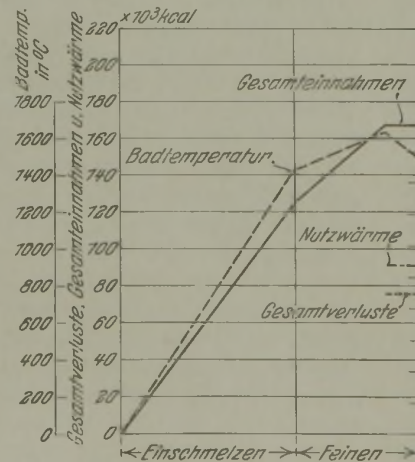 Badtemp.
in °C
Gesamtverluste, Gesamteinnahmen u. Nutzwärme
×10³kcal
220
200
1800 180
1600 160
1400 140
1200 120
1000 100
800 80
600 60
400 40
200 20
0 0
Gesamteinnahmen
Badtemperatur
Nutzwärme
Gesamtverluste
Einschmelzen
Feinen